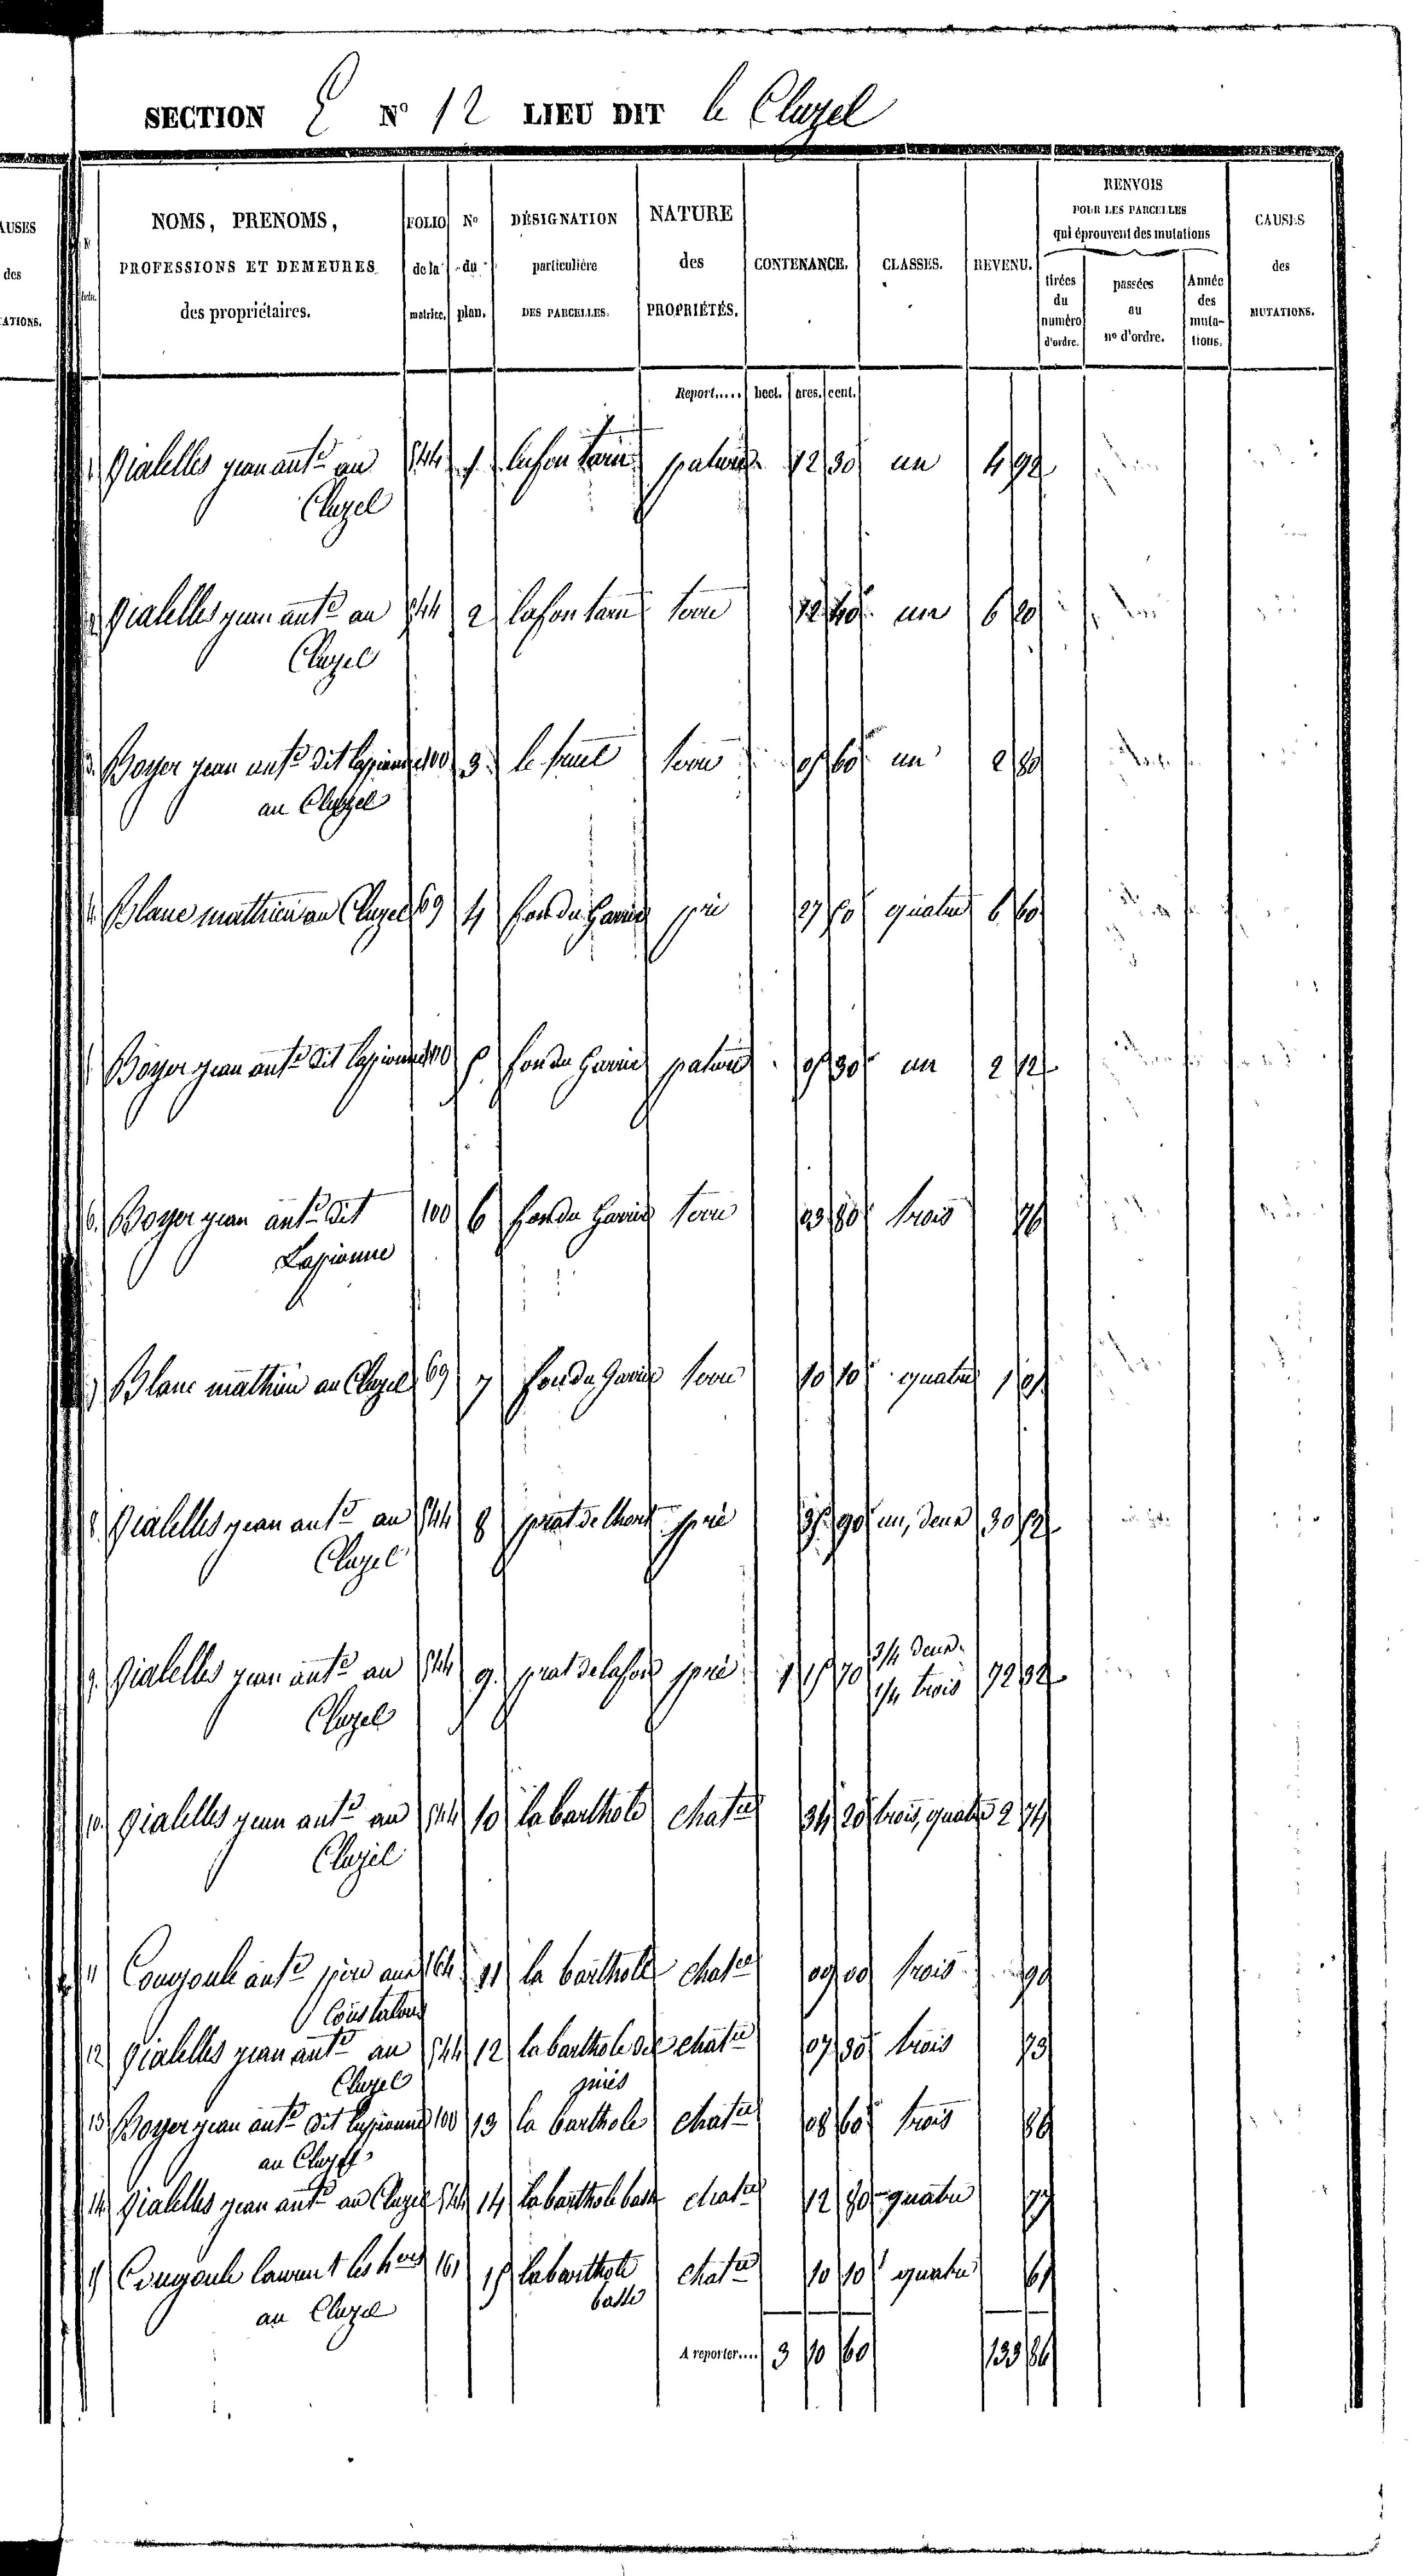 SECTION E N° 12 LIEU DIT le Cluzel
AUSES des ATIONS.
NOMS, PRENOMS, PROFESSIONS ET DEMEURES des propriétaires.
FOLIO de la matrice.
N° du plan.
DÉSIGNATION particulière DES PARCELLES.
NATURE des PROPRIÉTÉS.
CONTENANCE.
CLASSES.
REVENU.
RENVOIS POUR LES PARCELLES qui éprouvent des mutations
tirées du numéro d'ordre.
passées au n° d'ordre.
Année des mutations.
CAUSES des MUTATIONS.
Report..... hect. ares. cent.
Gialelles jean ante au 544 1 lafontaine pature 12 30 un 4 92
Cluzel
2 Gialelles jean ante au 544 2 lafontaine terre 12 40 un 6 20
Cluzel
3 Boyer jean ante dit lapionne 100 3 le terre 05 60 un 2 80
au Cluzel
4 Blanc mathieu au Cluzel 69 4 fon du pré 27 50 quatre 6 60
Boyer jean ante dit lapionne 100 5 fon du pature 05 30 un 2 12
6 Boyer jean ante dit 100 6 fon du terre 03 80 trois 76
Lapionne
7 Blanc mathieu au Cluzel 69 7 fon du terre 10 10 quatre 1 01
8 Gialelles jean ante au 544 8 prat de lhort pré 35 90 un, deux 30 52
Cluzel
9 Gialelles jean ante au 544 9 prat de lafon pré 1 15 70 3/4 deux 1/4 trois 72 32
Cluzel
10 Gialelles jean ante au 544 10 la barthole chatie 34 20 trois, quatre 2 74
Cluzel
11 Cougoule ante père 164 11 la barthole chatie 09 00 trois 90
12 Gialelles jean ante au 544 12 la barthole chatie 07 30 trois 73
Cluzel
13 Boyer jean ante dit lapionne 100 13 la barthole chatie 08 60 trois 86
au
14 Gialelles jean ante au Cluzel 544 14 la barthole basse chatie 12 80 quatre 77
15 Cougoule laurent les hers 161 15 la barthole chatie 10 10 quatre 61
au Cluzel basse
A reporter.... 3 10 60 133 86